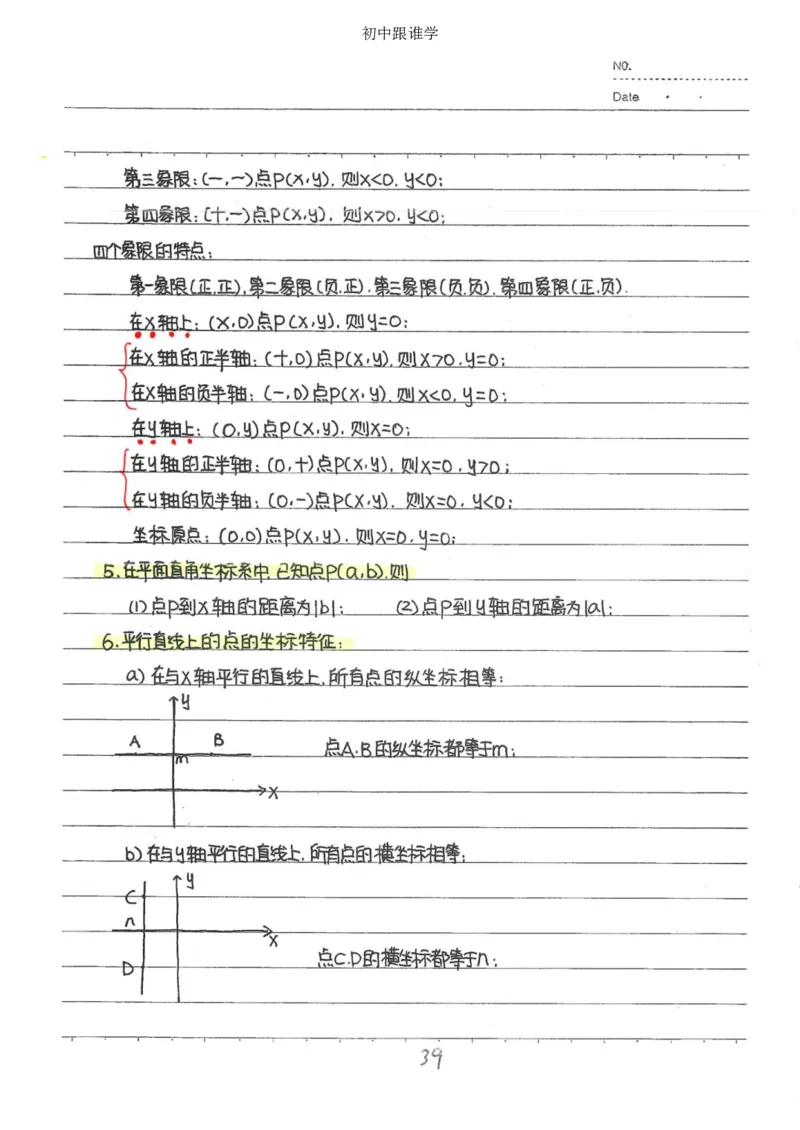 初中跟谁学
NO.
Date
第三象限:(-,-)点P(x,y),则x<0,y<0;
第四象限:(+,-)点P(x,y),则x>0,y<0;
四个象限的特点:
第一象限(正,正),第二象限(负,正),第三象限(负,负),第四象限(正,负).
在x轴上:(x,0)点P(x,y),则y=0;
在x轴的正半轴:(+,0)点P(x,y),则x>0,y=0;
在x轴的负半轴:(-,0)点P(x,y),则x<0,y=0;
在y轴上:(0,y)点P(x,y),则x=0;
在y轴的正半轴:(0,+)点P(x,y),则x=0,y>0;
在y轴的负半轴:(0,-)点P(x,y),则x=0,y<0;
坐标原点:(0,0)点P(x,y),则x=0,y=0;
5.在平面直角坐标系中,已知点P(a,b),则
(1)点P到x轴的距离为|b|; (2)点P到y轴的距离为|a|;
6.平行直线上的点的坐标特征:
a)在与x轴平行的直线上,所有点的纵坐标相等;
y
A B 点A.B的纵坐标都等于m;
m
x
b)在与y轴平行的直线上,所有点的横坐标相等;
y
C
n
x
D 点C.D的横坐标都等于n;
39